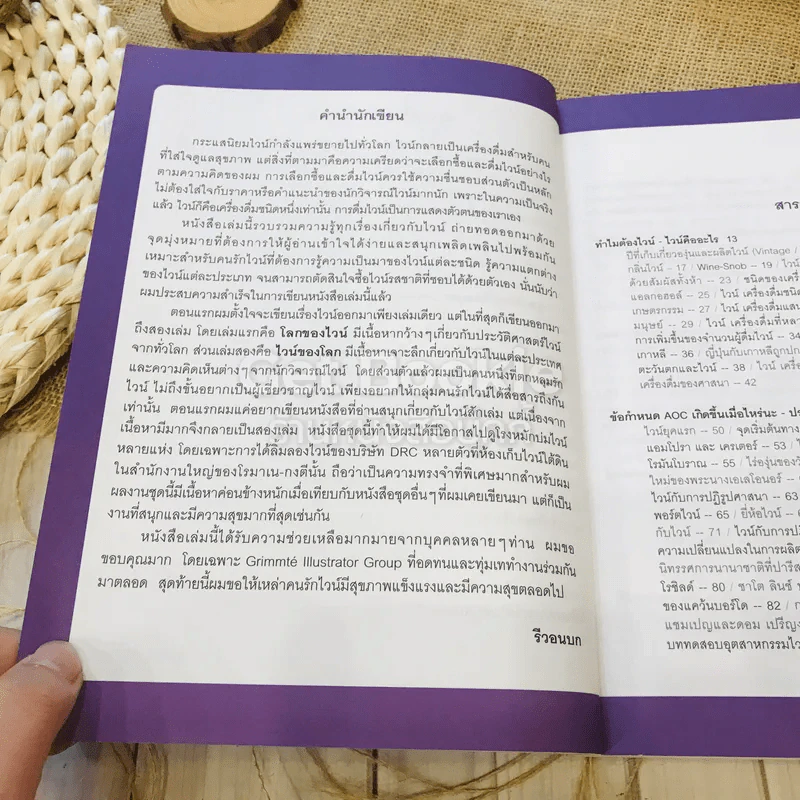 คำนำนักเขียน
กระแสนิยมไวน์กำลังแพร่ขยายไปทั่วโลก ไวน์กลายเป็นเครื่องดื่มสำหรับคน
ที่ใส่ใจดูแลสุขภาพ แต่สิ่งที่ตามมาคือความเครียดว่าจะเลือกซื้อและดื่มไวน์อย่างไร
ตามความคิดของผม การเลือกซื้อและดื่มไวน์ควรใช้ความชื่นชอบส่วนตัวเป็นหลัก
ไม่ต้องใส่ใจกับราคาหรือคำแนะนำของนักวิจารณ์ไวน์มากนัก เพราะในความเป็นจริง
แล้ว ไวน์ก็คือเครื่องดื่มชนิดหนึ่งเท่านั้น การดื่มไวน์เป็นการแสดงตัวตนของเราเอง
หนังสือเล่มนี้รวบรวมความรู้ทุกเรื่องเกี่ยวกับไวน์ ถ่ายทอดออกมาด้วย
จุดมุ่งหมายที่ต้องการให้ผู้อ่านเข้าใจได้ง่ายและสนุกเพลิดเพลินไปพร้อมกัน
เหมาะสำหรับคนรักไวน์ที่ต้องการรู้ความเป็นมาของไวน์แต่ละชนิด รู้ความแตกต่าง
ของไวน์แต่ละประเภท จนสามารถตัดสินใจซื้อไวน์รสชาติที่ชอบได้ด้วยตัวเอง นั่นนับว่า
ผมประสบความสำเร็จในการเขียนหนังสือเล่มนี้แล้ว
ตอนแรกผมตั้งใจจะเขียนเรื่องไวน์ออกมาเพียงเล่มเดียว แต่ในที่สุดก็เขียนออกมา
ถึงสองเล่ม โดยเล่มแรกคือ โลกของไวน์ มีเนื้อหากว้างๆ เกี่ยวกับประวัติศาสตร์ไวน์
จากทั่วโลก ส่วนเล่มสองคือ ไวน์ของโลก มีเนื้อหาเจาะลึกเกี่ยวกับไวน์ในแต่ละประเทศ
และความคิดเห็นต่างๆ จากนักวิจารณ์ไวน์ โดยส่วนตัวแล้วผมเป็นคนหนึ่งที่ตกหลุมรัก
ไวน์ ไม่ถึงขั้นอยากเป็นผู้เชี่ยวชาญไวน์ เพียงอยากให้กลุ่มคนรักไวน์ได้สื่อสารถึงกัน
เท่านั้น ตอนแรกผมแค่อยากเขียนหนังสือที่อ่านสนุกเกี่ยวกับไวน์สักเล่ม แต่เนื่องจาก
เนื้อหามีมากจึงกลายเป็นสองเล่ม หนังสือชุดนี้ทำให้ผมได้มีโอกาสไปดูโรงหมักบ่มไวน์
หลายแห่ง โดยเฉพาะการได้ลิ้มลองไวน์ของบริษัท DRC หลายตัวที่ห้องเก็บไวน์ใต้ดิน
ในสำนักงานใหญ่ของโรมาเน-กงตีนั้น ถือว่าเป็นความทรงจำที่พิเศษมากสำหรับผม
ผลงานชุดนี้มีเนื้อหาค่อนข้างหนักเมื่อเทียบกับหนังสือชุดอื่นๆ ที่ผมเคยเขียนมา แต่ก็เป็น
งานที่สนุกและมีความสุขมากที่สุดเช่นกัน
หนังสือเล่มนี้ได้รับความช่วยเหลือมากมายจากบุคคลหลายๆ ท่าน ผมขอ
ขอบคุณมาก โดยเฉพาะ Grimmté Illustrator Group ที่อดทนและทุ่มเททำงานร่วมกัน
มาตลอด สุดท้ายนี้ผมขอให้เหล่าคนรักไวน์มีสุขภาพแข็งแรงและมีความสุขตลอดไป
รีวอนบก
สาร
ทำไมต้องไวน์ - ไวน์คืออะไร 13
ปีที่เก็บเกี่ยวองุ่นและผลิตไวน์ (Vintage /
กลิ่นไวน์ - 17 / Wine-Snob -- 19 / ไวน์
ด้วยสัมผัสทั้งห้า -- 23 / ชนิดของเครื่
แอลกอฮอล์ -- 25 / ไวน์ เครื่องดื่มชนิ
เกษตรกรรม -- 27 / ไวน์ เครื่องดื่มแสน
มนุษย์ -- 29 / ไวน์ เครื่องดื่มที่หลา
การเพิ่มขึ้นของจำนวนผู้ดื่มไวน์ -- 34
เกาหลี -- 36 / ญี่ปุ่นกับเกาหลีถูกปก
ตะวันตกและไวน์ -- 38 / ไวน์ เครื่
เครื่องดื่มของศาสนา -- 42
ข้อกำหนด AOC เกิดขึ้นเมื่อไหร่นะ - ประ
ไวน์ยุคแรก -- 50 / จุดเริ่มต้นทาง
แอมโปรา และ เครเตอร์ -- 53 /
โรมันโบราณ -- 55 / ไร่องุ่นของวั
ใหม่ของพระนางเอเลอโนอร์ --
ไวน์กับการปฏิรูปศาสนา -- 63
พอร์ตไวน์ -- 65 / ยี่ห้อไวน์ -
กับไวน์ -- 71 / ไวน์กับการปฏิ
ความเปลี่ยนแปลงในการผลิต
นิทรรศการนานาชาติที่ปารีส
โรชิลด์ -- 80 / ชาโต ลินซ์
ของแคว้นบอร์โด -- 82 / ก
แชมเปญและดอม เปรีญง
บททดสอบอุตสาหกรรมไว